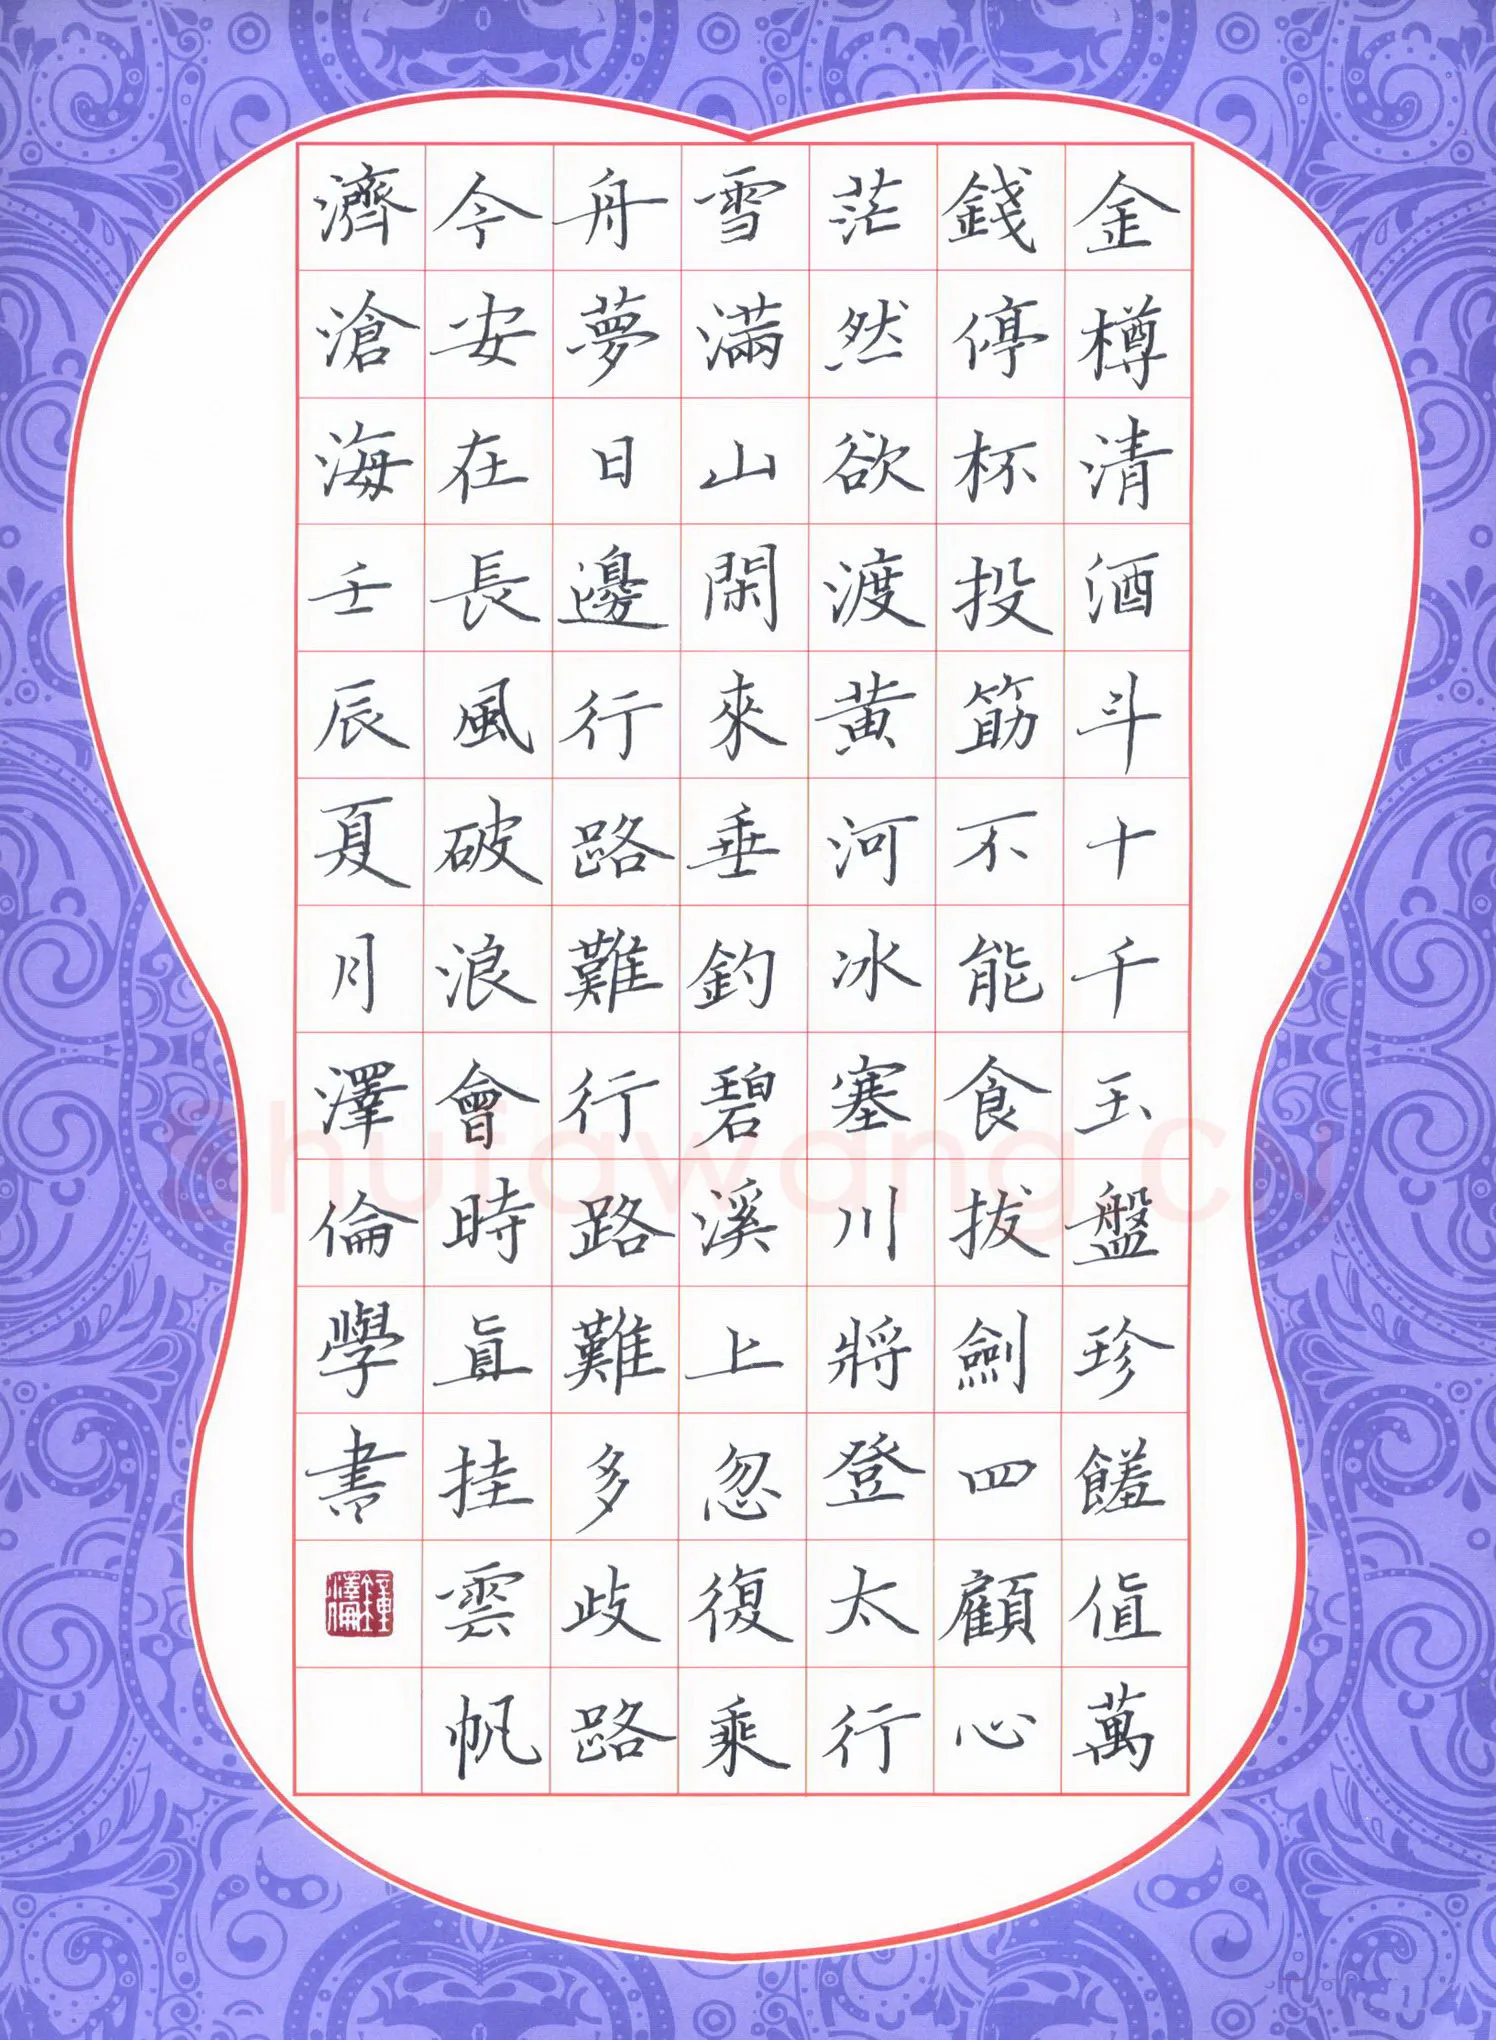 金樽清酒斗十千玉盤珍饈值萬
錢停杯投筯不能食拔劍四顧心
茫然欲渡黄河冰塞川將登太行
雪滿山閑來垂釣碧溪上忽復乘
舟夢日邊行路難行路難多歧路
今安在長風破浪會時真挂雲帆
濟滄海壬辰夏月澤倫學書
shufawang.cn